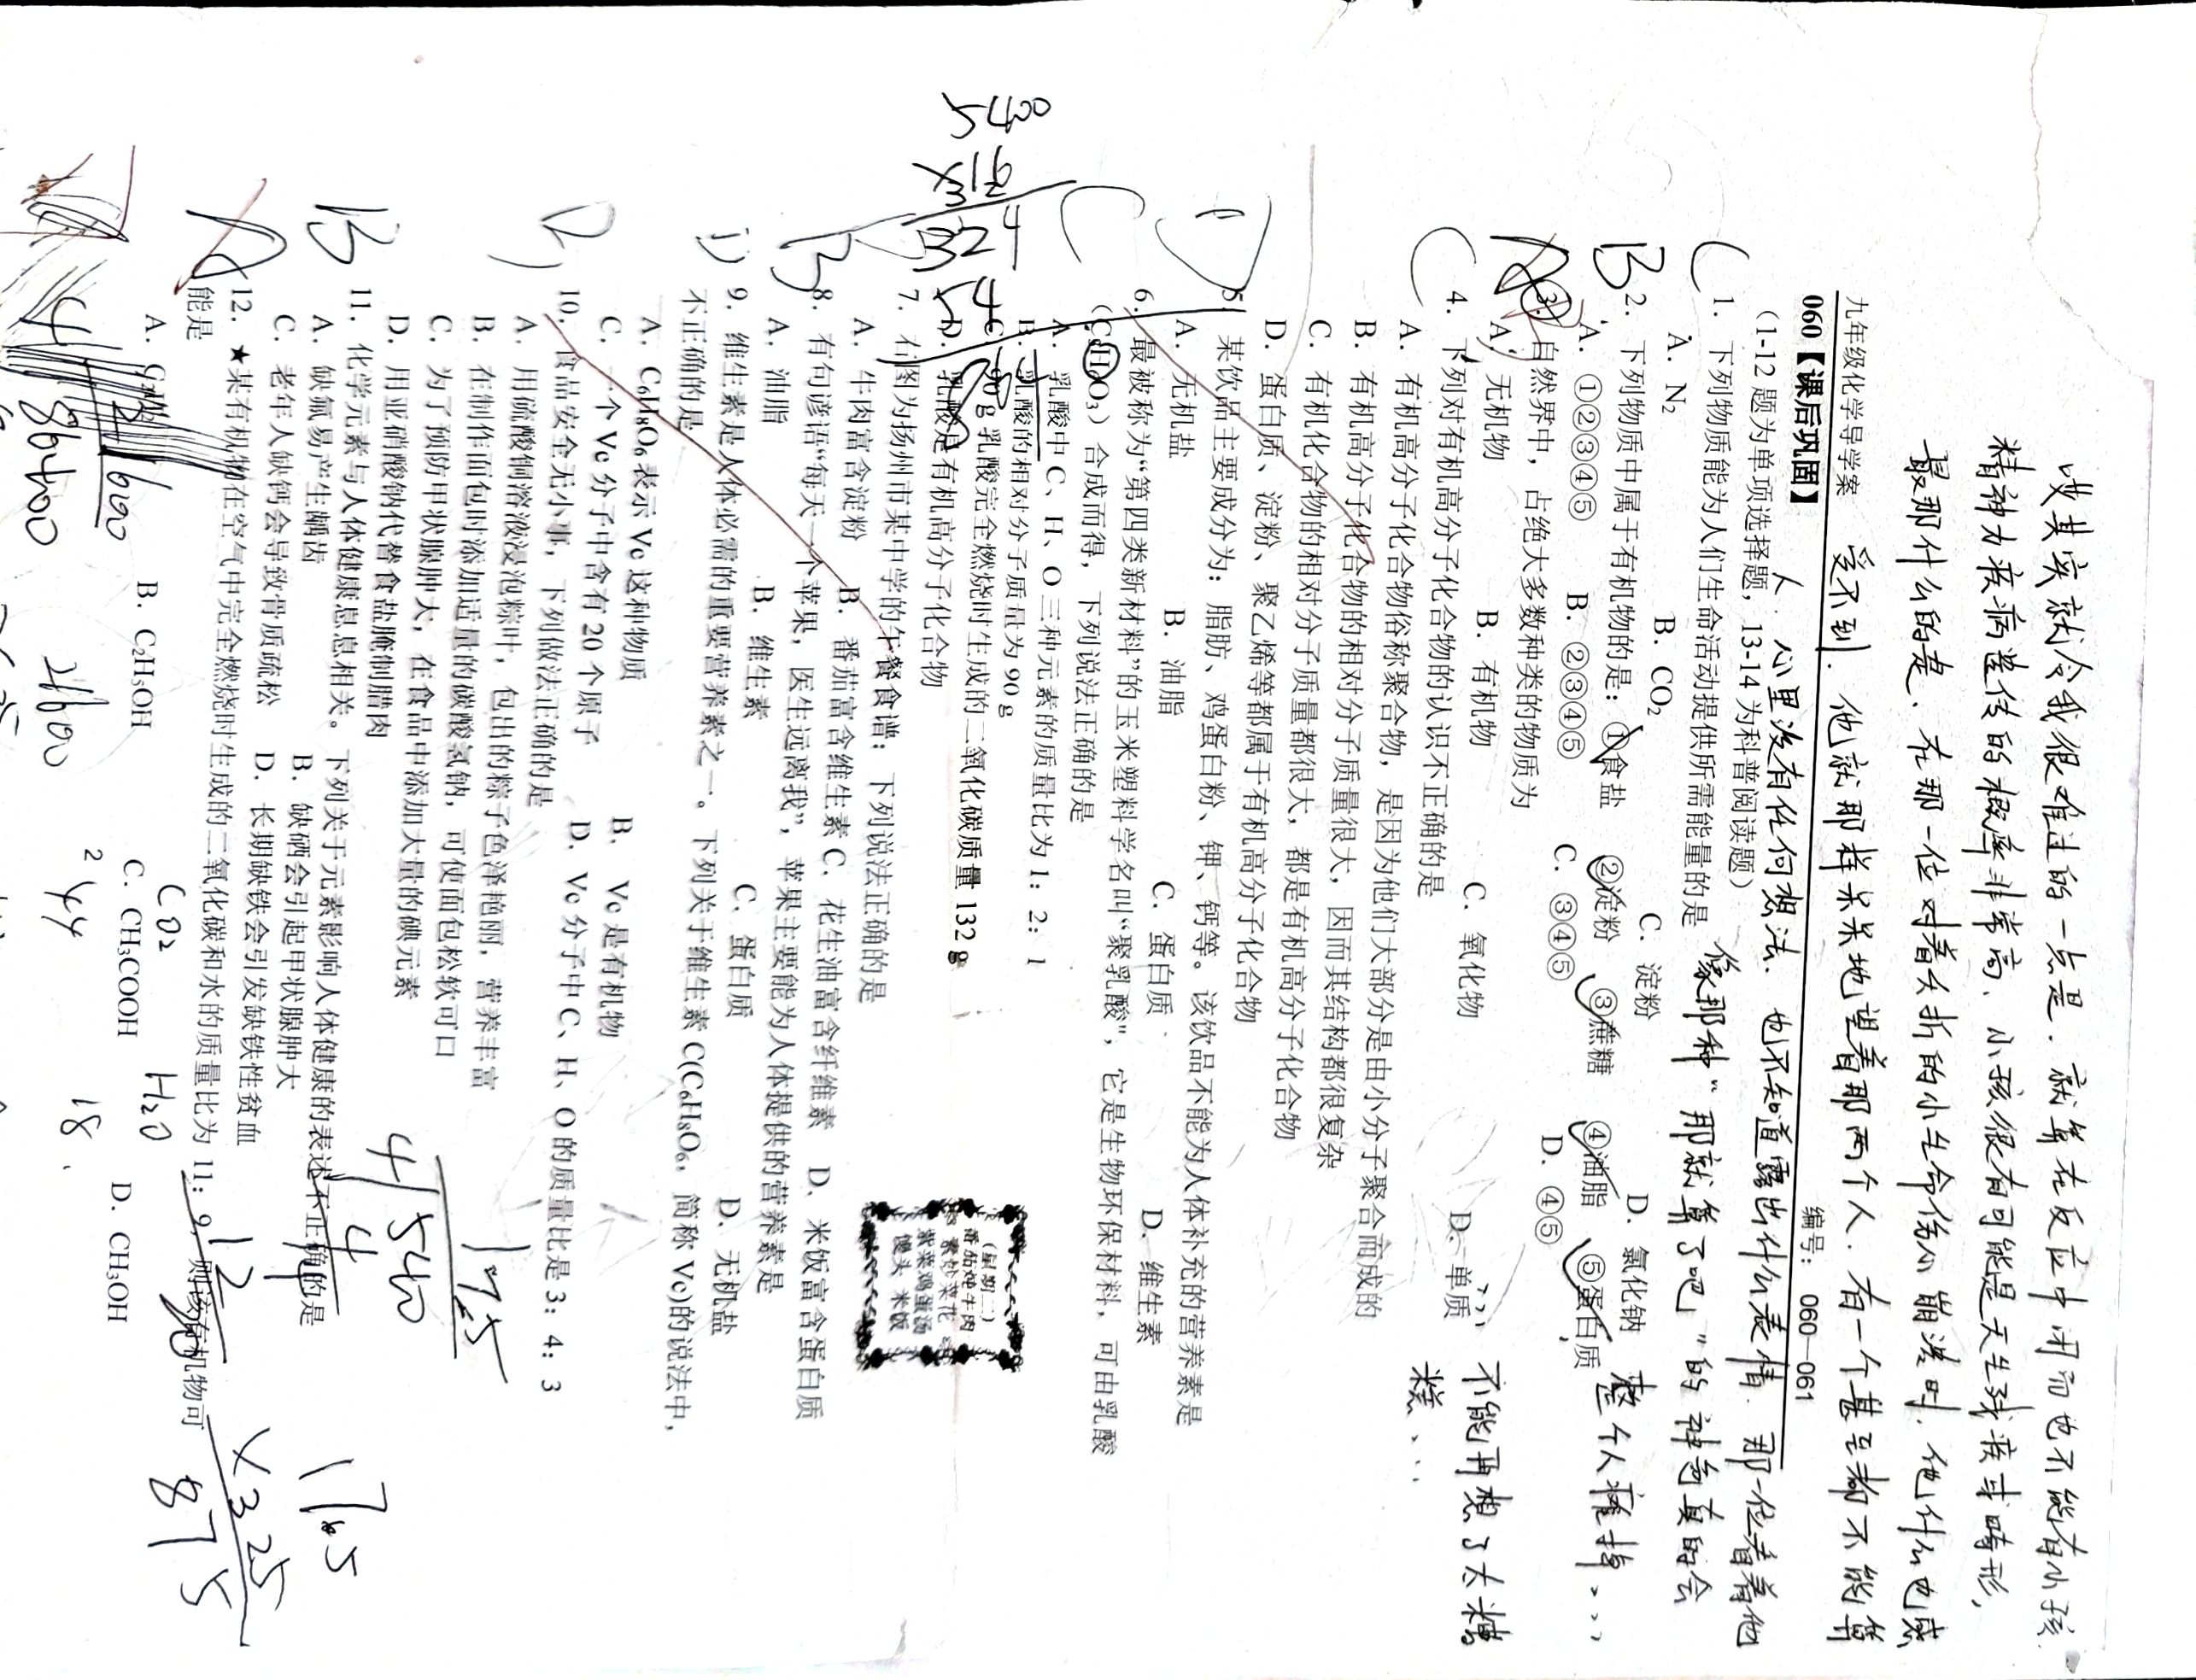 哎其实就令我很难过的一点是.就算在反应中闭而也不能有小孩.
精神力疾病遗传的概率非常高、小孩很有可能是天生残疾或畸形,
最那什么的是.在那一位对着夭折的小生命伤心崩溃时.他什么也感
受不到.他就那样呆呆地望着那两个人.有一个甚至都不能算
九年级化学导学案 编号：060—061
人.心里没有任何想法、也不知道露出什么表情.那一位看着他
060【课后巩固】
像那种“那就算了吧”的神色真的会
整个人疼挛、、、
不能再想了太糟
糕、、、
（1-12 题为单项选择题，13-14 为科普阅读题）
C 1．下列物质能为人们生命活动提供所需能量的是
A．N₂ B．CO₂ C．淀粉 D．氯化钠
B 2．下列物质中属于有机物的是：①食盐 ②淀粉 ③蔗糖 ④油脂 ⑤蛋白质
A．①②③④⑤ B．②③④⑤ C．③④⑤ D．④⑤
3．自然界中，占绝大多数种类的物质为
A．无机物 B．有机物 C．氧化物 D．单质
C 4．下列对有机高分子化合物的认识不正确的是
A．有机高分子化合物俗称聚合物，是因为他们大部分是由小分子聚合而成的
B．有机高分子化合物的相对分子质量很大，因而其结构都很复杂
C．有机化合物的相对分子质量都很大，都是有机高分子化合物
D．蛋白质、淀粉、聚乙烯等都属于有机高分子化合物
5．某饮品主要成分为：脂肪、鸡蛋白粉、钾、钙等。该饮品不能为人体补充的营养素是
A．无机盐 B．油脂 C．蛋白质 D．维生素
C 6．最被称为“第四类新材料”的玉米塑料学名叫“聚乳酸”，它是生物环保材料，可由乳酸
（C₃H₆O₃）合成而得，下列说法正确的是
A．乳酸中 C、H、O 三种元素的质量比为 1：2：1
B．乳酸的相对分子质量为 90 g
C．90 g 乳酸完全燃烧时生成的二氧化碳质量 132 g
D．乳酸是有机高分子化合物
7．右图为扬州市某中学的午餐食谱：下列说法正确的是
A．牛肉富含淀粉 B．番茄富含维生素 C．花生油富含纤维素 D．米饭富含蛋白质
（星期二）
番茄炖牛肉
素炒菜花
紫菜鸡蛋汤
馒头 米饭
B 8．有句谚语“每天一个苹果，医生远离我”，苹果主要能为人体提供的营养素是
A．油脂 B．维生素 C．蛋白质 D．无机盐
D 9．维生素是人体必需的重要营养素之一。下列关于维生素 C(C₆H₈O₆，简称 Vc)的说法中，
不正确的是
A．C₆H₈O₆表示 Vc 这种物质 B．Vc 是有机物
C．一个 Vc 分子中含有 20 个原子 D．Vc 分子中 C、H、O 的质量比是 3：4：3
10．食品安全无小事，下列做法正确的是
A．用硫酸铜溶液浸泡粽叶，包出的粽子色泽艳丽，营养丰富
B．在制作面包时添加适量的碳酸氢钠，可使面包松软可口
C．为了预防甲状腺肿大，在食品中添加大量的碘元素
D．用亚硝酸钠代替食盐腌制腊肉
B 11．化学元素与人体健康息息相关。下列关于元素影响人体健康的表述不正确的是
A．缺氟易产生龋齿 B．缺硒会引起甲状腺肿大
C．老年人缺钙会导致骨质疏松 D．长期缺铁会引发缺铁性贫血
12．★某有机物在空气中完全燃烧时生成的二氧化碳和水的质量比为 11：9，则该有机物可
能是
B．C₂H₅OH C．CH₃COOH D．CH₃OH
CO₂ H₂O
44 18
4 540
175
86400
21600
×325
875